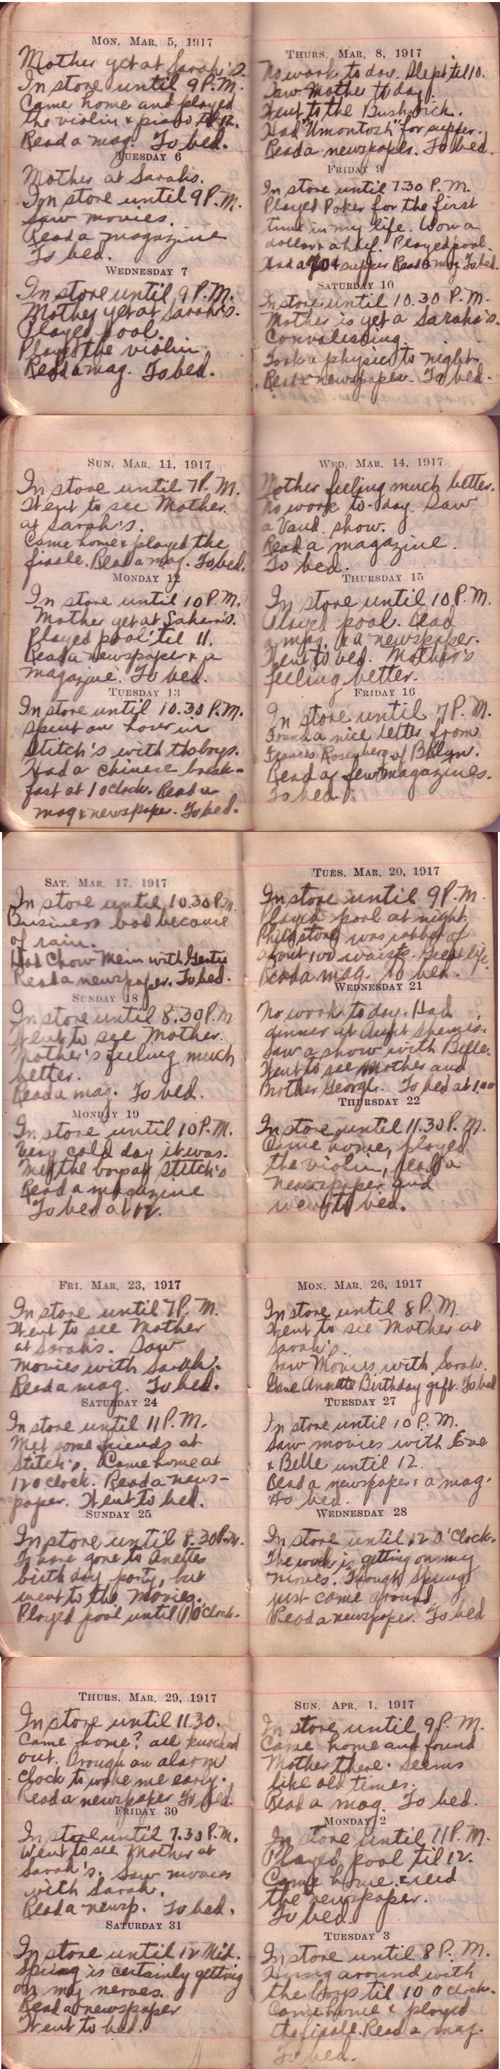 Mon. Mar. 5, 1917
Mother yet at Sarah's.
In store until 9 P.M.
Came home and played
the violin & piano til 12.
Read a mag. To bed.
Tuesday 6
Mother at Sarahs.
In store until 9 P.M.
Saw movies.
Read a magazine
To bed.
Wednesday 7
In store until 9 P.M.
Mother yet at Sarah's.
Played pool.
Played the violin
Read a mag. To bed.
Thurs. Mar. 8, 1917
No work to day. Slept til 10.
Saw Mother today.
Went to the Bushwick.
Had "Unontosh" for supper.
Read a newspaper. To bed.
Friday 9
In store until 7.30 P.M.
Played Poker for the first
time in my life. Won a
dollar & a half. Played pool.
Had a 70¢ supper Read a mag To bed.
Saturday 10
In store until 10.30 P.M.
Mother is yet a Sarahs's.
Convalescing.
Took a physic to night.
Read a newspaper. To bed.
Sun. Mar. 11, 1917
In store until 7 P.M.
Went to see Mother
at Sarah's.
Came home & played the
fiddle. Read a mag. To bed.
Monday 12
In store until 10 P.M.
Mother yet at Sahara's.
Played pool 'til 11.
Read a newspaper & a
magazine. To bed.
Tuesday 13
In store until 10.30 P.M.
Spent an hour in
Stitch's with the boys.
Had a Chinese break-
fast at 1 oclock. Read a
mag & newspaper. To bed.
Wed. Mar. 14, 1917
Mother feeling much better.
No work to-day. Saw
a Vaud. show.
Read a magazine.
To bed.
Thursday 15
In store until 10 P.M.
Played pool. Read
a mag. & a newspaper.
Went to bed. Mother's
feeling better.
Friday 16
In store until 7 P.M.
Found a nice letter from
Frances Rosenberg of Bklyn.
Read a few magazines.
To bed.
Sat. Mar. 17, 1917
In store until 10.30 P.M.
Business bad because
of rain.
Had Chow Mein with Gertie
Read a newspaper. To bed.
Sunday 18
In store until 8.30 P.M
Went to see Mother.
Mother's feeling much
better.
Read a mag. To bed.
Monday 19
In store until 10 P.M.
Very cold day it was.
Met the boys at Stitch's
Read a magazine
To bed at 12.
Tues. Mar. 20, 1917
In store until 9 P.M.
Played pool at night.
Phil's store was robbed of
about 100 waists. Great life.
Read a mag. To bed.
Wednesday 21
No work to day. Had
dinner at Aught
Saw a show with Belle.
Went to see Mother and
Brother George. To bed at 1.00
Thursday 22
In store until 11.30 P.M.
Came home, played
the violin, read a
newspaper and
went to bed.
Fri. Mar. 23, 1917
In store until 7 P.M.
Went to see Mother
at Sarahs. Saw
movies with Sarah.
Read a mag. To bed.
Saturday 24
In store until 11 P.M.
Met some friends at
Stitch's. Came home at
12 o clock. Read a news-
paper. Went to bed.
Sunday 25
In store until 8.30 P.M.
To have gone to Anettes
birth day party, but
went to the Movies.
Played pool until 11 o'clock.
Mon. Mar. 26, 1917
In store until 8 P.M.
Went to see Mother at
Sarah's.
Saw Movies with Sarah.
Gave Annette Birthday gift. To bed
Tuesday 27
In store until 10 P.M.
Saw movies with Eve
& Belle until 12.
Read a newspaper & a mag.
To bed.
Wednesday 28
In store until 12 O'Clock.
The work is getting on my
nerves. Though Spring
just came around.
Read a newspaper. To bed
Thurs. Mar. 29, 1917
In store until 11.30.
Came home? all knocked
out. Brough an alarm
clock to wake me early.
Read a newspaper To bed.
Friday 30
In store until 7.30 P.M.
Went to see Mother at
Sarah's. Saw movies
with Sarah.
Read a newsp. To bed.
Saturday 31
In store until 12 Mid.
Spring is certainly getting
on my nerves.
Read a newspaper
Went to bed.
Sun. Apr. 1, 1917
In store until 9 P.M.
Came home and found
Mother there. Seems
like old times.
Read a mag. To bed.
Monday 2
In store until 11 P.M.
Played pool til 12.
Came home & read
the newspaper.
To bed.
Tuesday 3
In store until 8 P.M.
Hung around with
the boys til 10 o clock.
Came home & played
the fiddle. Read a mag.
To bed.